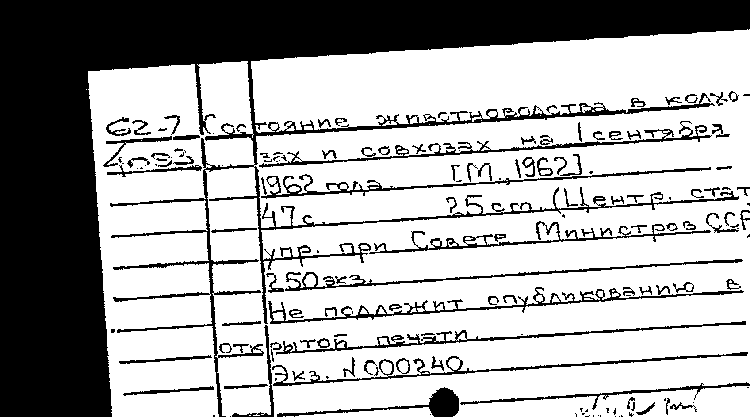 62-7 Состояние животноводства в колхо-
4093 зах и совхозах на 1 сентября
1962 года. [М., 1962].
47с. 25 см. (Центр. стат
упр. при Совете Министров ССР)
250 экз.
Не подлежит опубликованию в
открытой печати.
Экз. N000240.